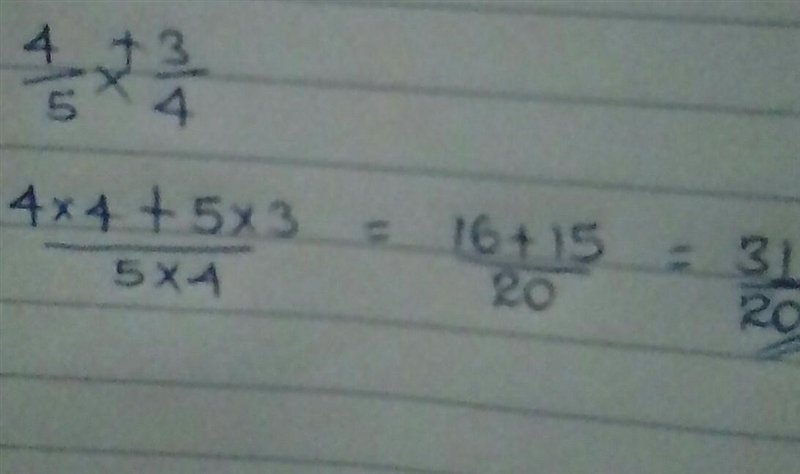 4/5 × + 3/4
4×4 + 5×3 / 5×4 = 16+15 / 20 = 31/20